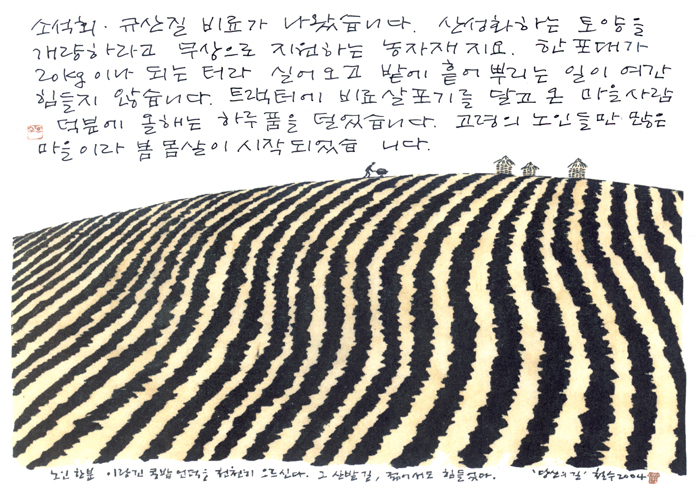 소석회·규산질 비료가 나왔습니다. 산성화하는 토양을
개량하라고 무상으로 지원하는 농자재지요. 한 포대가
20kg이나 되는 터라 실어오고 밭에 흩어 뿌리는 일이 여간
힘들지 않습니다. 트랙터에 비료살포기를 달고 온 마을사람
덕분에 올해는 하루품을 덜었습니다. 고령의 노인들만 많은
마을이라 봄 몸살이 시작되었습 니다.
노인 한분 이랑진 콩밭 언덕을 천천히 오르신다. 그 산밭길, 젊어서도 힘들었다.
'당신의 길' 철수 2004